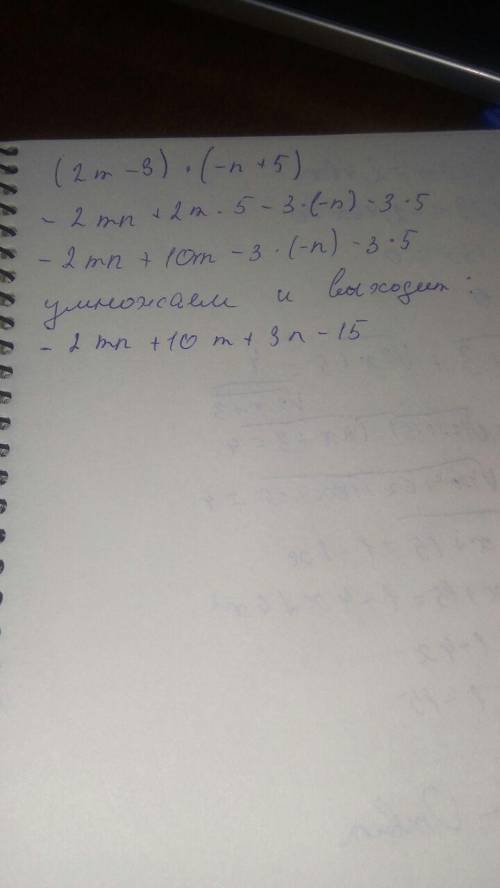 (2m - 3) · (-n + 5)
- 2mn + 2m · 5 - 3 · (-n) - 3 · 5
- 2mn + 10m - 3 · (-n) - 3 · 5
умножаем и выходит:
- 2mn + 10m + 3n - 15